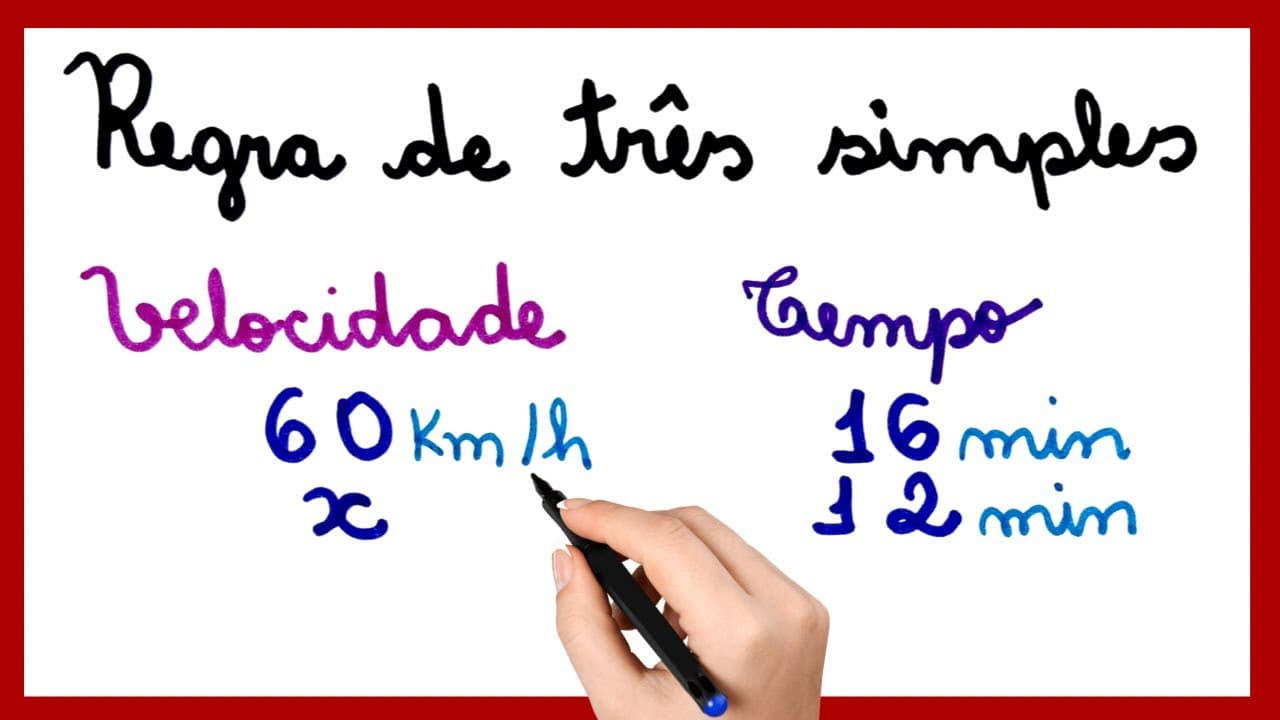 Regra de três simples
Velocidade Tempo
60 Km/h 16 min
x 12 min